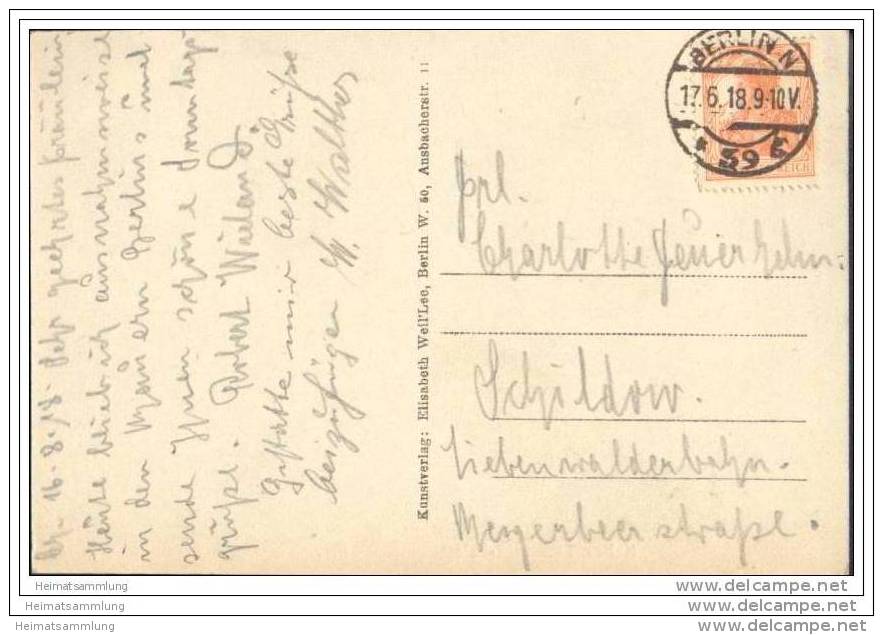 Bln. 16.8.18. Sehr geehrtes Fräulein,
Heute blieb ich ausnahmsweise
in den Mauern Berlins und
sende Ihnen schöne Sonntags-
grüße. Robert Wieland.
Gestatte mir beste Grüße
beizufügen W. Walther
Kunstverlag: Elisabeth Weil'Lee, Berlin W. 50, Ansbacherstr. 11
BERLIN N
17.6.18.9-10V.
* 39 E
REICH
Frl.
Charlotte Feuerhelm.
Schildow.
Liebenwalderbahn.
Meyerbeerstraße.
Heimatsammlung
Heimatsammlung
Heimatsammlung
www.delcampe.net
www.delcampe.net
www.delcampe.net